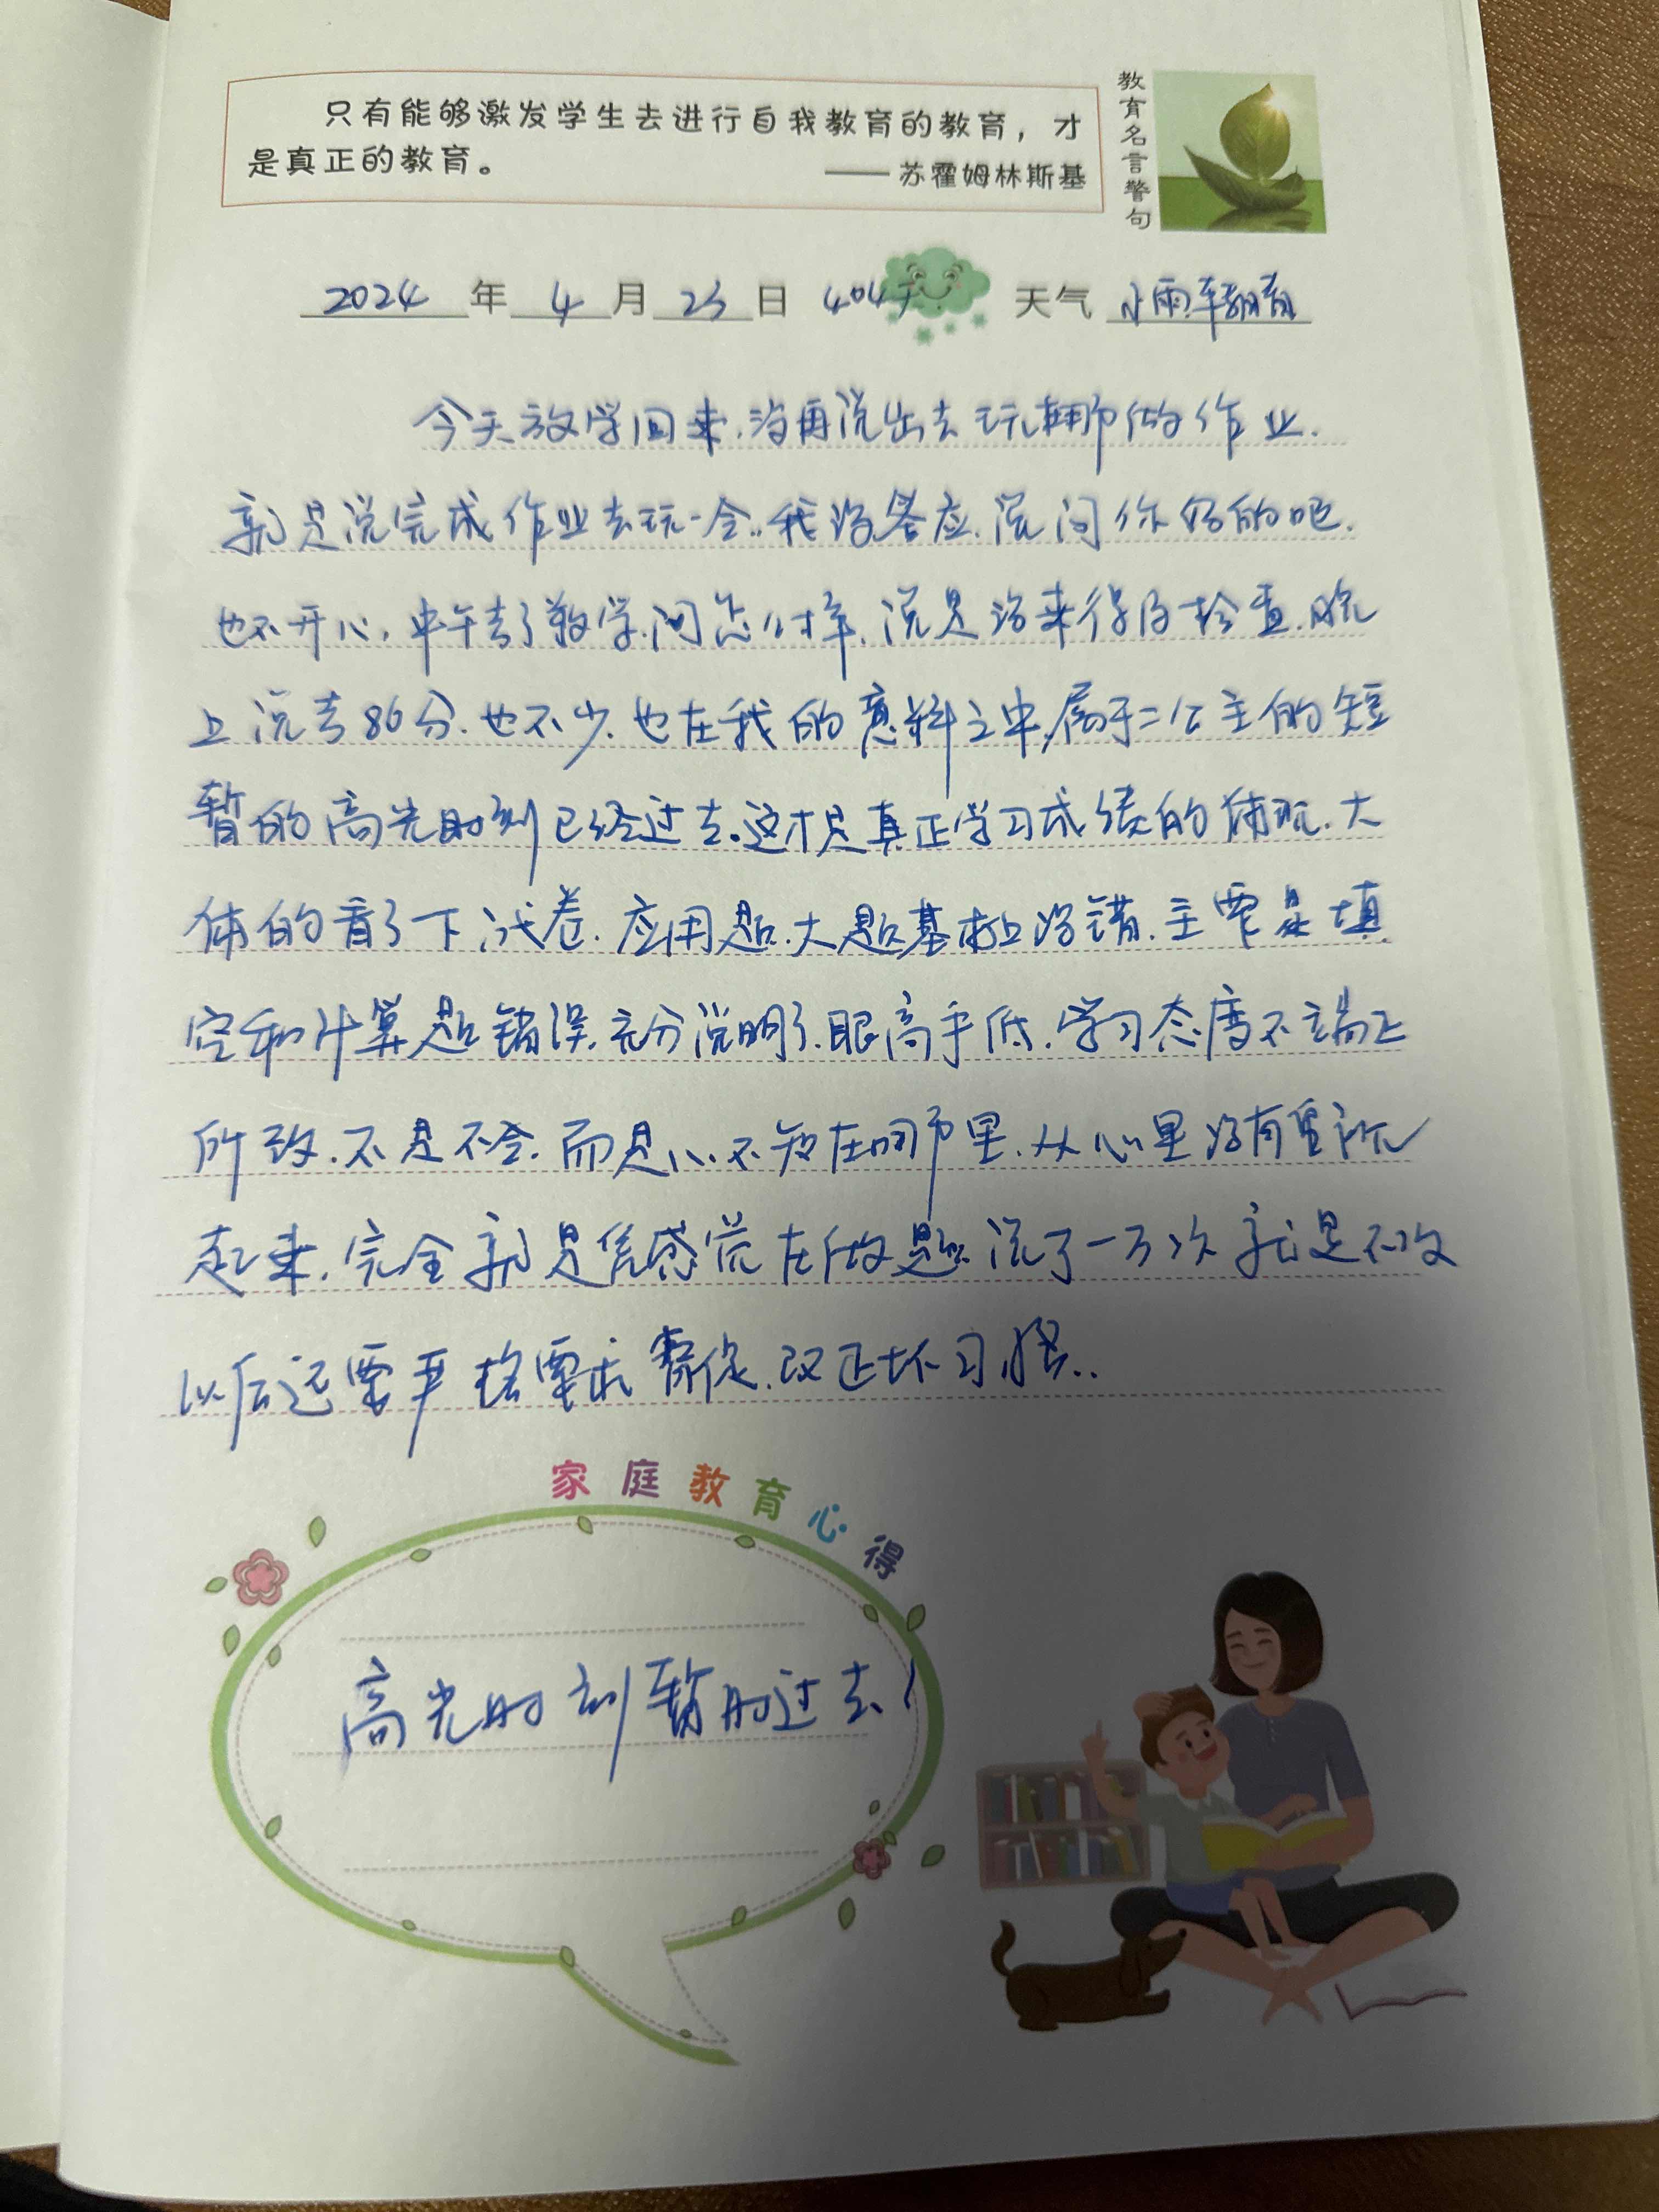 只有能够激发学生去进行自我教育的教育，才
是真正的教育。
——苏霍姆林斯基
教育名言警句
2024年4月23日 404天 天气 小雨转阴
今天放学回来.没再说出去玩再做作业.
就是说完成作业去玩一会..我没答应.说问你妈的吧.
也不开心.中午考了数学.问怎么样.说是没来得及检查.晚
上说考86分.也不少.也在我的意料之中,属于二公主的短
暂的高光时刻已经过去。这才是真正学习成绩的体现.大
体的看了下试卷.应用题.大题基本上没错.主要是填
空和计算题错误.充分说明了.眼高手低.学习态度不端正
所致.不是不会.而是心不知在哪里.从心里没有重视
起来.完全就是凭感觉在做题.说了一万次就是不改
以后还要严格要求督促.改正坏习惯..
家庭教育心得
高光时刻暂时过去！